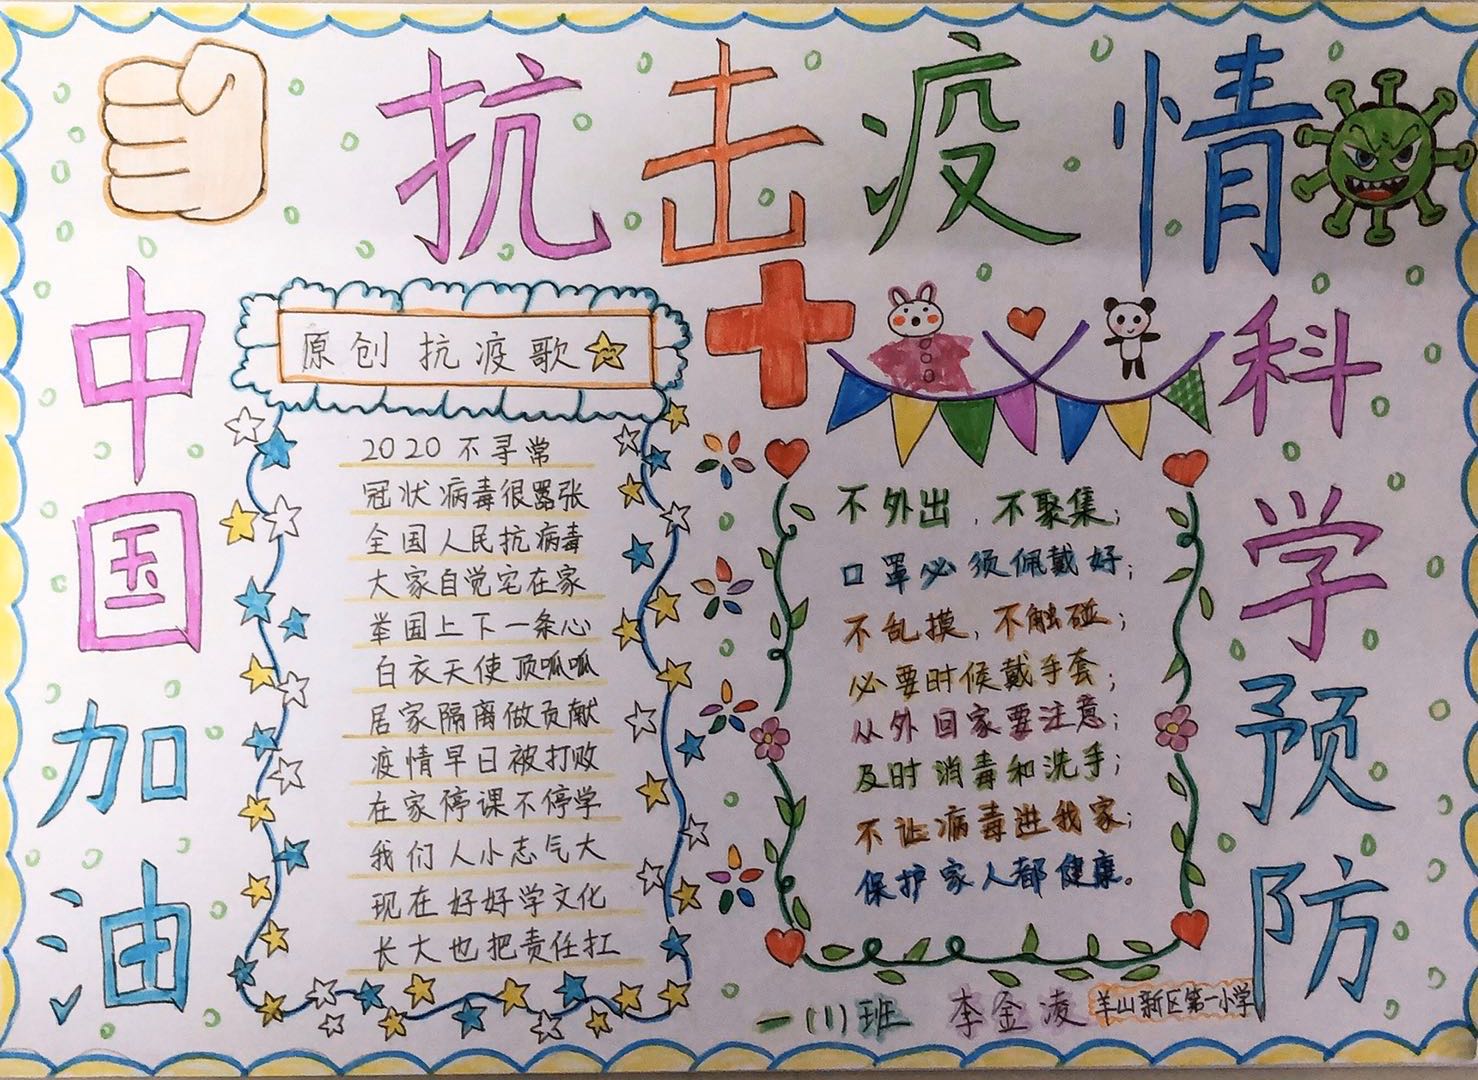 抗击疫情
中国加油
原创抗疫歌
2020不寻常
冠状病毒很嚣张
全国人民抗病毒
大家自觉宅在家
举国上下一条心
白衣天使顶呱呱
居家隔离做贡献
疫情早日被打败
在家停课不停学
我们人小志气大
现在好好学文化
长大也把责任扛
不外出,不聚集;
口罩必须佩戴好;
不乱摸,不触碰;
必要时候戴手套;
从外回家要注意;
及时消毒和洗手;
不让病毒进我家;
保护家人都健康。
科学预防
一(1)班 李金凌 羊山新区第一小学